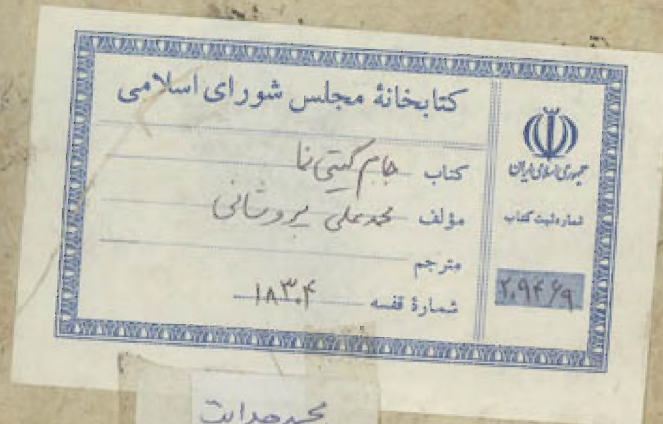 کتابخانهٔ مجلس شورای اسلامی
کتاب جام گیتی نما
مؤلف محمدعلی
مترجم
شمارهٔ قفسه ۱۸۳۰۴
جمهوری اسلامی ایران
شماره ثبت کتاب
۲۰۹۴۶۹